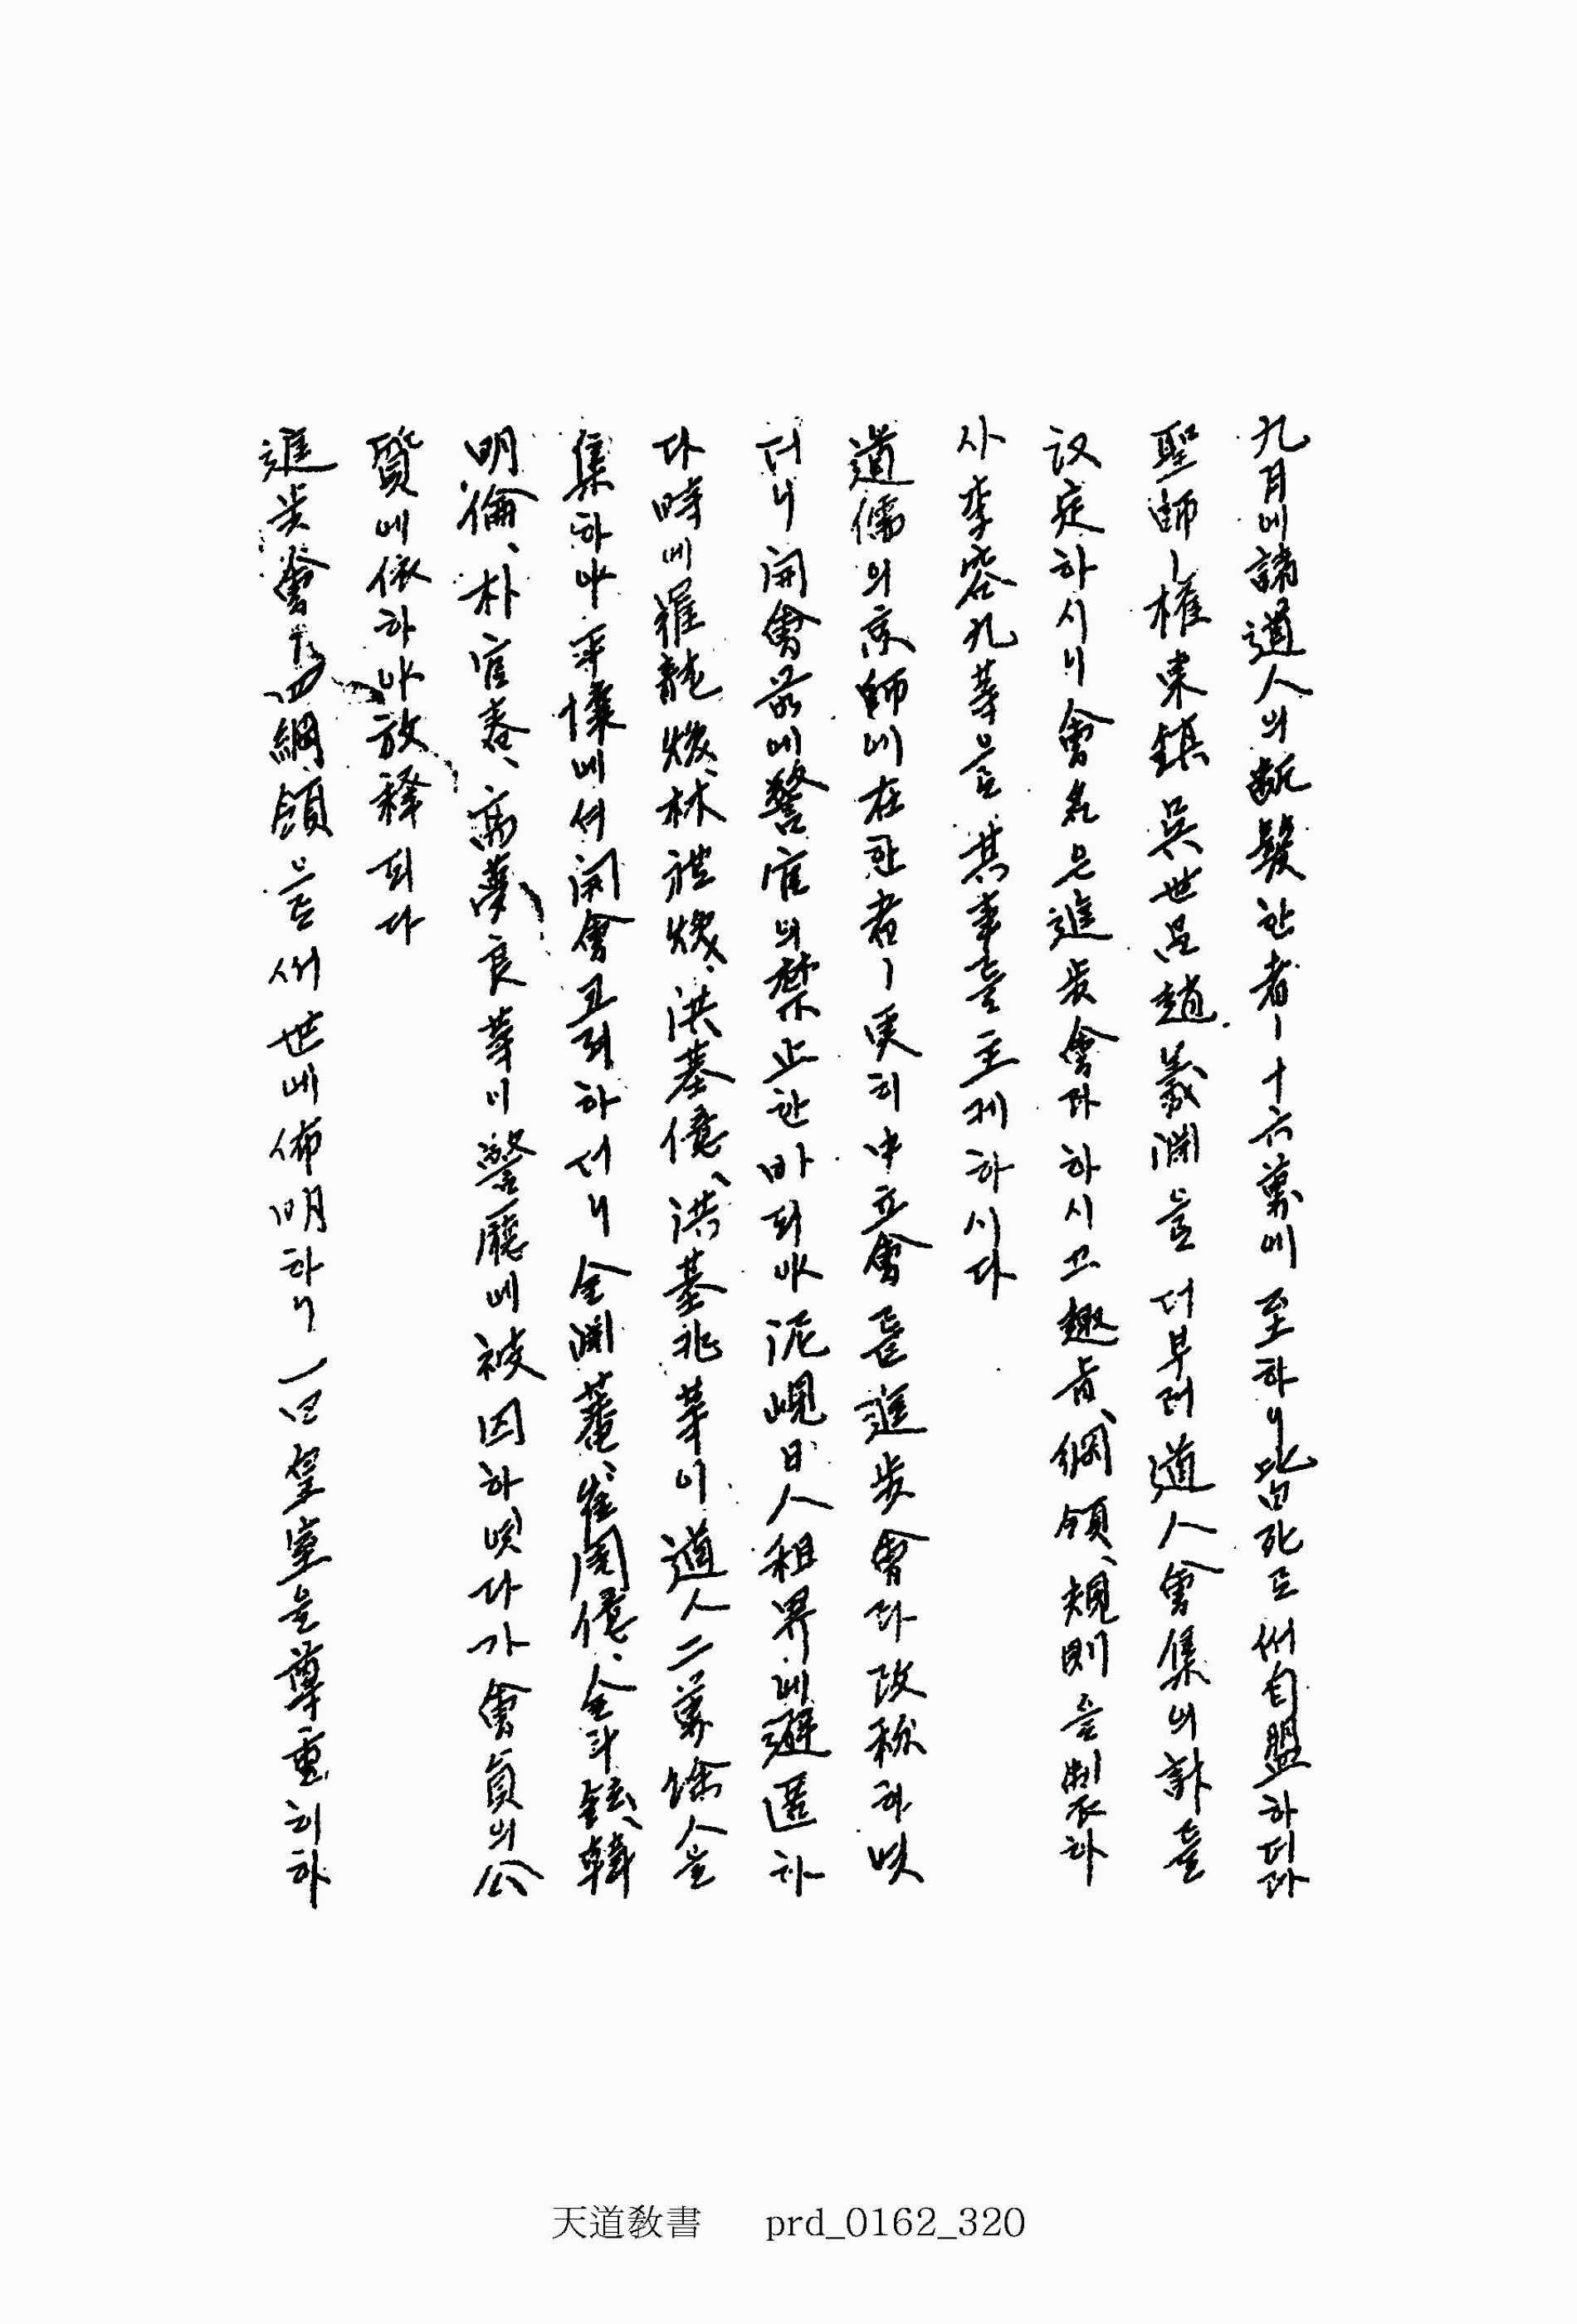 九月에諸道人의斷髮한者ㅣ十六萬에至하니皆死로써自盟하더라
聖師ㅣ權東鎭吳世昌趙羲淵을더부러道人會集의計를
议定하시니會名은進步會라하시고趣旨、綱領、規則을製하
사李容九等으로其事를主케하시다
道儒의京師에在한者ㅣ更히中立會를進步會라改称하엿
더니開會일에警官의禁止한바되야泥峴日人租界에避匿하
다時에羅龍煥、林禮煥、洪基億、洪基兆等이道人二萬餘人을
集하야平壤에서開會코져하더니金淵蓍、崔周億、金斗鉉、韓
明倫、朴官春、高夢良等이警廳에被囚하엿다가會員의公
質에依하야放释되다
進步會ㅣ四綱領을써世에佈明하니一曰皇室을尊重히하
天道敎書 prd_0162_320